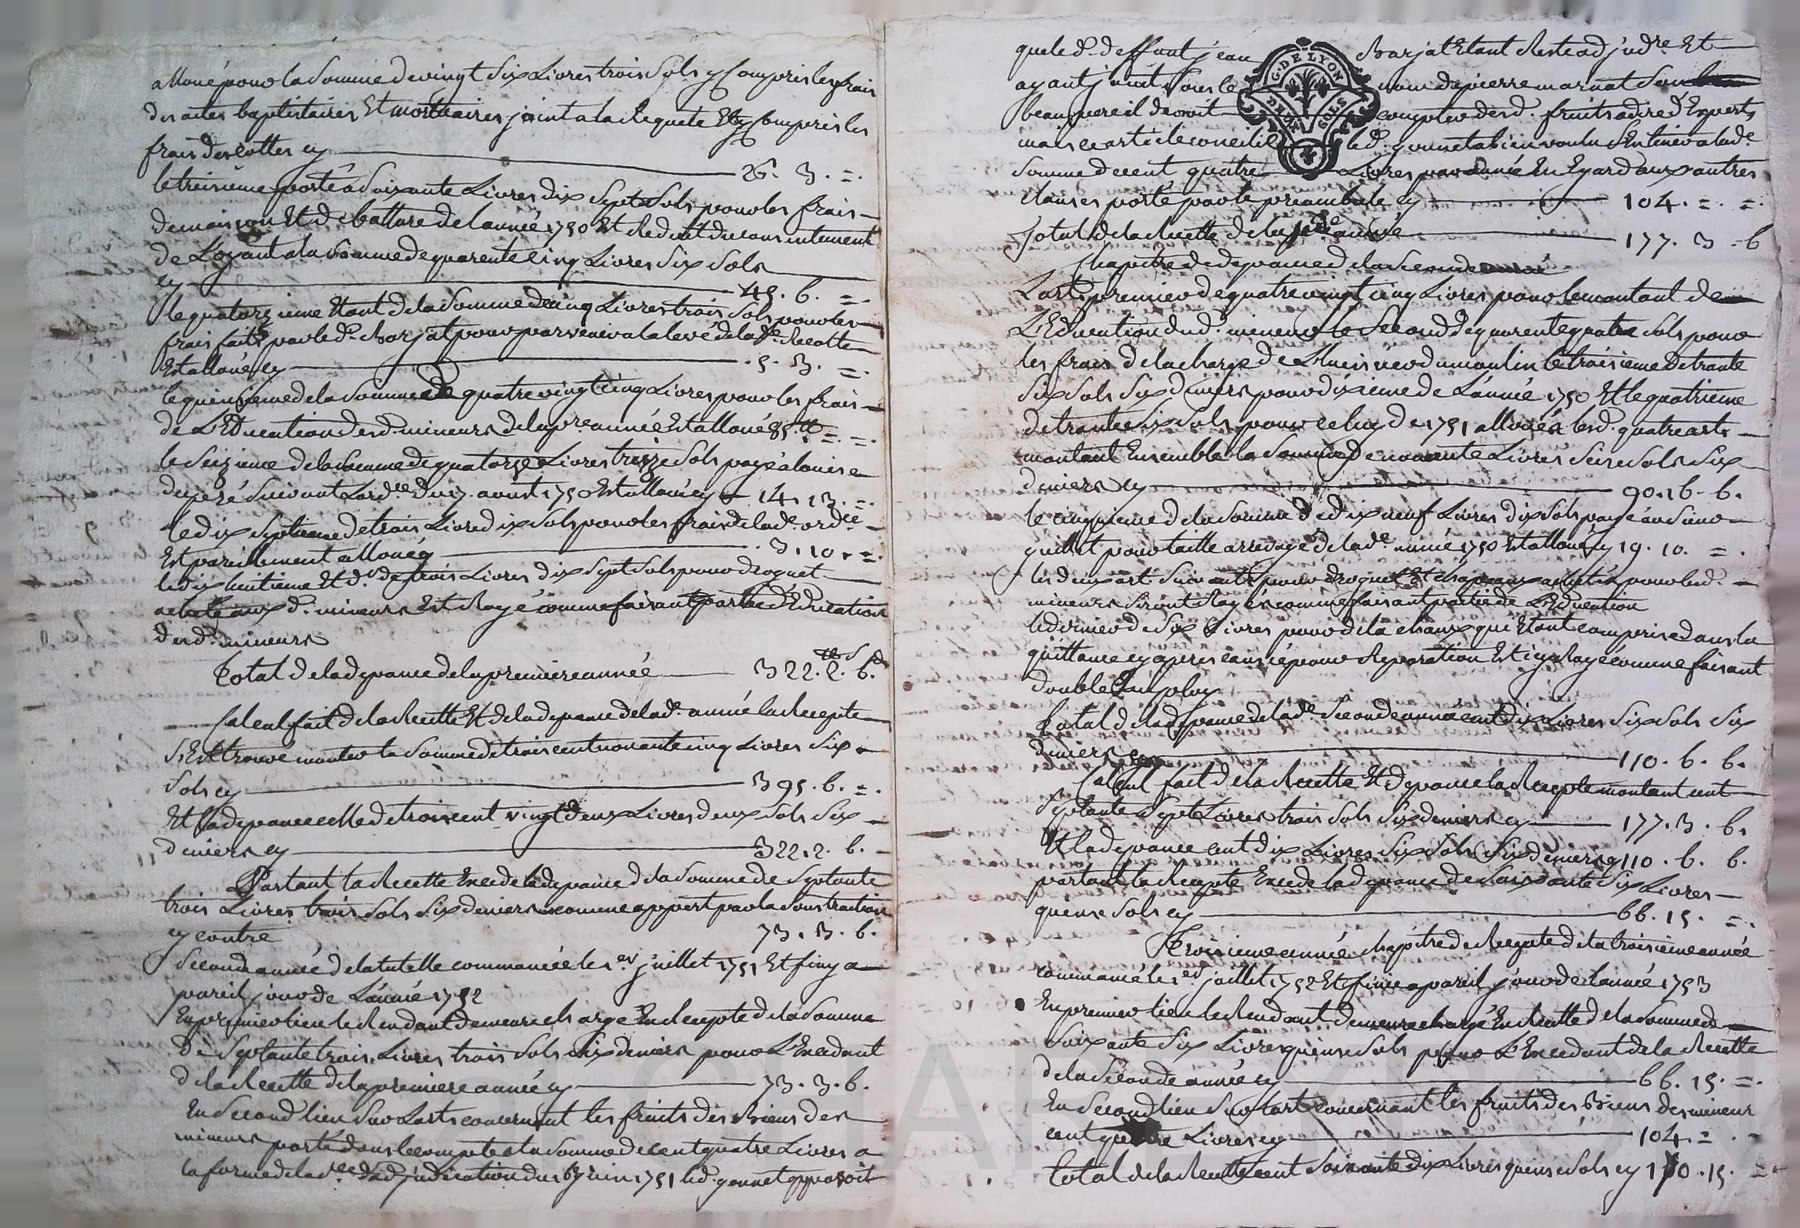 alloué pour la somme de vingt six Livres trois sols y Compris les frais
des actes baptistaires Et mortuaires joint a la Requete Et y Compris les
frais des cottes cy 26. 3. =.
le treisieme porté a soixante Livres dix sept sols pour les frais
de moisson Et de batture de l'année 1750 Et Reduit du consentement
de L'oyant a la somme de quarente cinq Livres six sols
cy 45. 6. =.
le quatorzieme Etant de la somme de cinq Livres trois sols pour les
frais faits par led. Barjat pour parvenir a la levé de lad. Recolte
Est alloué cy 5. 3. =.
le quinsieme de la somme de quatre vingt cinq Livres pour les frais
de L'Education desd. mineurs de la pre année Est alloué 85 ₶ =. =.
le seizieme de la somme de quatorze Livres treize sols payé a louise
suivant Lordce du 17. aoust 1750 Est alloué cy 14. 13. =.
le dix septieme de trois Livre dix sols pour les frais de lad. ordce
Est pareillement alloué cy 3. 10. =.
le dix huitieme Et der de trois Livres dix sept sols pour droguet
acheté aux d. mineurs Est Rayé comme faisant partie de L'Education
desd. mineurs
Total de la depance de la premiere année 322.₶ 2.s 6.d
Calcul fait de la Recette Et de la depance de lad. année la Recepte
s'Est trouvé monter la somme de trois cent nonante cinq Livres six
sols cy 395. 6. =.
Et la depance celle de trois cent vingt deux Livres deux sols six
deniers cy 322. 2. 6.
Partant la Recette Excede la depance de la somme de septante
trois Livres trois sols six deniers comme appert par la soustraction
cy contre 73. 3. 6.
Seconde année de la tutelle commancée le 1er juillet 1751 Et finy a
pareil jour de L'année 1752
En premier lieu le Rendant demeure chargé En Recepte de la somme
de septante trois Livres trois sols six deniers pour L'Excedant
de la Recette de la premiere année cy 73. 3. 6.
En second lieu sur L'art concernant les fruits des Biens des
mineurs porté dans le compte a la somme de cent quatre Livres a
la forme de la dadjudication du 16 juin 1751 led. gonnet opposoit
que le d. deffunt jean Barjat Etant Resté adjudre Et
ayant jouit sous le nom de pierre marnat son
beau pere il devoit compter desd. fruits a dire d'Experts
mais ce article concilié led. gonnet a bien voulu s'En tenir a lad.
somme de cent quatre Livres par année En Egard aux autres
clauses porté par le preambule cy 104. =. =.
Total de la Recette de la 2me année 177. 3. 6
Chapitre de depance de la seconde
L'art. premier de quatre vingt cinq Livres pour le montant de
L'Education desd. mineurs le second de quarente quatre sols pour
les frais de la charge de L'huissier dumoulin le troisieme de trente
six sols six deniers pour dixieme de L'année 1750 Et le quatrieme
de trante six sols pour celluy de 1751 alloués lesd. quatre arts
montant Ensemble la somme de nonente Livres seise sols six
deniers cy 90. 16. 6.
le cinquieme de la somme de dix neuf Livres dix sols payé au sieur
quillet pour taille arrerage de lad. année 1750 Est alloué cy 19. 10. =.
les deux art suivants pour droguet Et chapeaux achetés pour lesd.
mineurs seront Rayés comme faisant partie de L'Education
le dernier de six Livres pour de la chaux qui Etant comprise dans la
quittance cy apres causé pour Reparation Est icy Rayé comme faisant
double Employ
Total de la depance de lad. seconde année cent dix Livres six sols six
deniers cy 110. 6. 6.
Calcul fait de la Recette Et depance la Recepte montant cent
septante sept Livres trois sols six deniers cy 177. 3. 6.
Et la depance cent dix Livres six sols six deniers cy 110. 6. 6.
partant la Recepte Excede la depance de soixante six Livres
quense sols cy 66. 15. =.
Troisieme année chapitre de Recepte de la troisieme année
commancé le 1er juillet 1752 Et finie a pareil jour de l'année 1753
En premier lieu le Rendant demeure chargé En Recette de la somme de
soixante six Livres quense sols pour L'Excedant de la Recette
de la seconde année cy 66. 15. =.
En second lieu sur L'art concernant les fruits des Biens des mineurs
cent quatre Livres cy 104 =.
Total de la Recette cent soixante dix Livres quense sols cy 170. 15. =
G. DE LYON